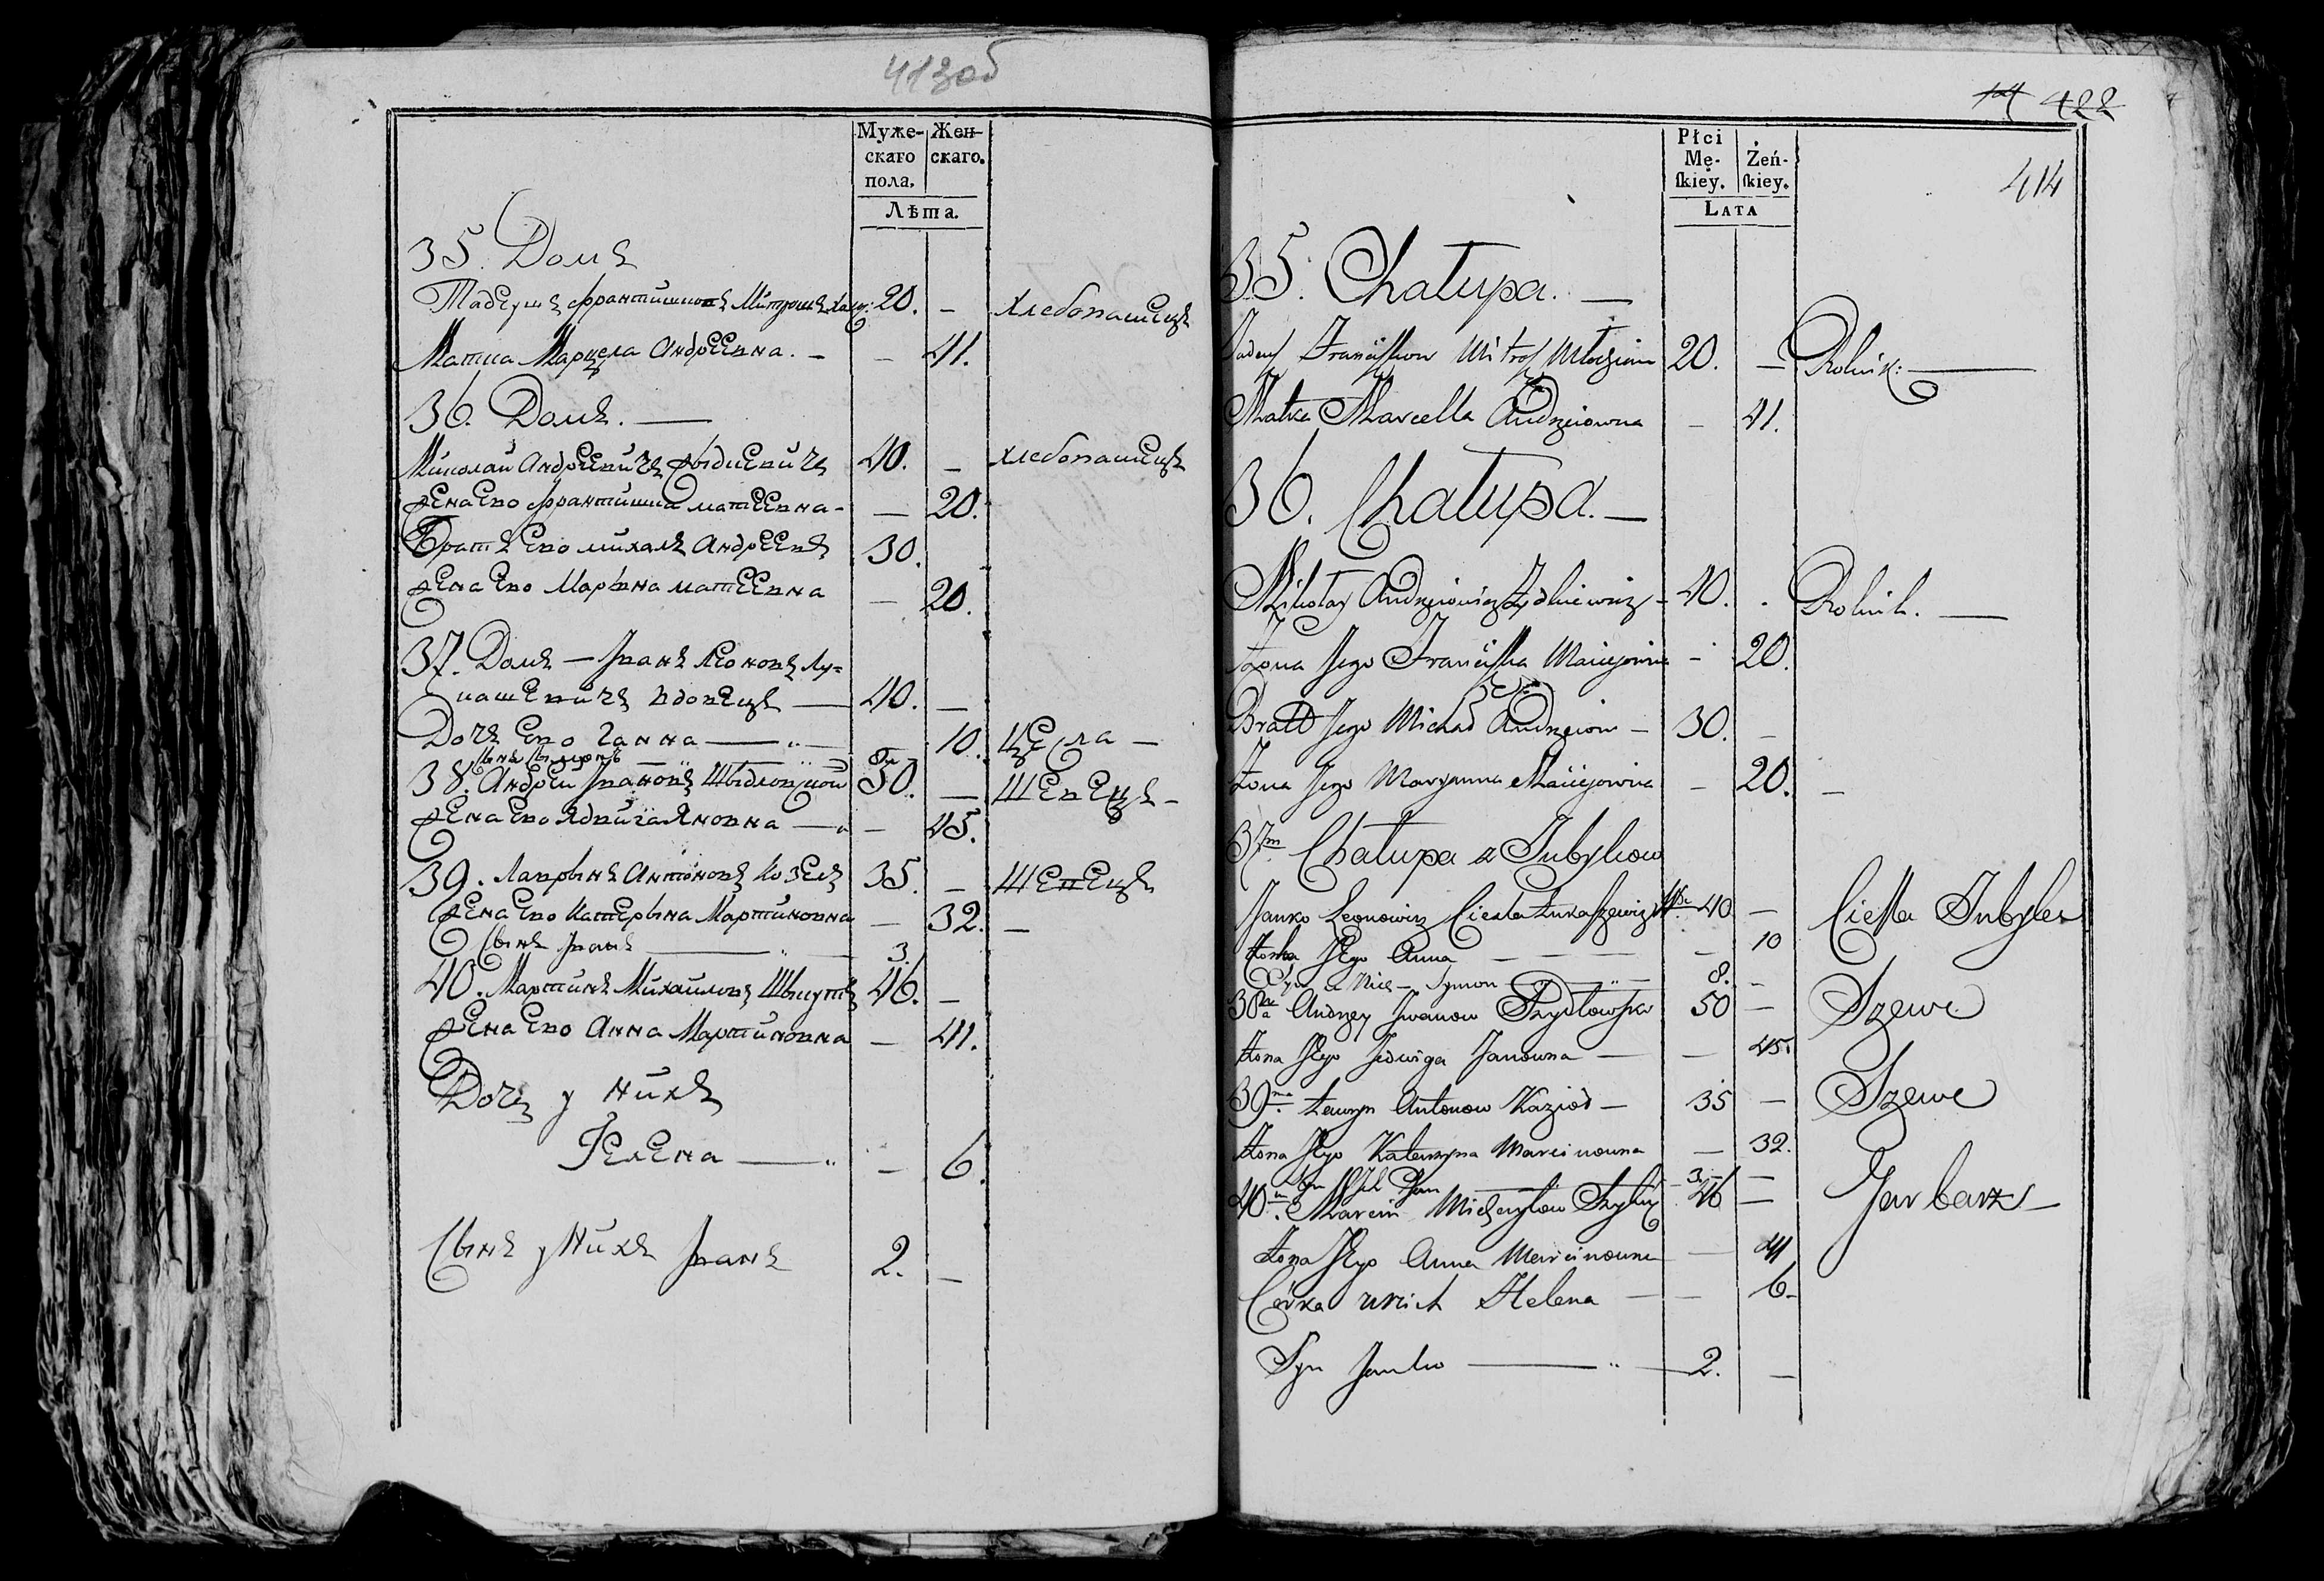 413об
Муже- Жен-
скаго скаго.
пола.
Лѣта.
35. Домъ
Тадеушъ Франтишковъ Митрошъ 20. — хлебопашецъ
Матка Марцела Андреевна. — — 41.
36. Домъ. —
Миколай Андреевичъ Жыдкевичъ 40. — хлебопашецъ
Жена Ево Франтишка матеевна — — 20.
Братъ Ево михалъ Андреевъ 30.
Жена Ево Марьяна матеевна — 20.
37. Домъ — Иванъ Леоновъ Лу-
кашевичъ вдовецъ — 40. —
Дочь Ево Ганна — 10. Цесла —
Сынъ Сымонъ — 8
38. Андрей Ивановъ Шыдловской 50. — Шевецъ —
Жена Ево Ядвига Яновна — — 45.
39. Лаврынъ Антоновъ Козелъ 35. — Шевецъ
Жена Ево Катерына Мартиновна — 32. —
Сынъ Иванъ — 3.
40. Мартинъ Михайловъ 46. —
Жена Ево Анна Мартиновна — 41.
Дочь у нихъ
Гелена — — 6.
Сынъ у Нихъ Иванъ 2. —
422
414
Płci
Mę- Żeń-
skiey. skiey.
LATA
35. Chałupa. —
Tadeusz Franciszkow Mitrosz Młodzian 20. — Rolnik: —
Matka Marcella Andrzeiowna — 41.
36. Chałupa. —
Mikołay Andrzeiowicz Żydkiewicz — 40. . Rolnik. —
Żona Jego Franciszka Macieiowna — 20.
Bratt Jego Michał Andrzeiow — 30. —
Żona Jego Maryanna Macieiowna — 20. —
37m Chałupa z Kubylnow
Janko Leonowicz Ciesla Łukaszewicz 40 — Ciesla
Jego Anna — — — — 10
Syn u Nich — Symon — 8. —
38a Andrzey Iwanow Szydłowski 50 — Szewc
Żona Jego Jedwiga Janowna — — 45.
39ma Ławryn Antonow Kazioł — 35 — Szewc
Żona Jego Katerzyna Marcinowna — 32.
Syn Ich Jan — 3. —
40m. Marcin Michayłow 46 — Garbarz —
Żona Jego Anna Marcinowna — 41
Córka u nich Helena — — 6 —
Syn Janko — 2. —